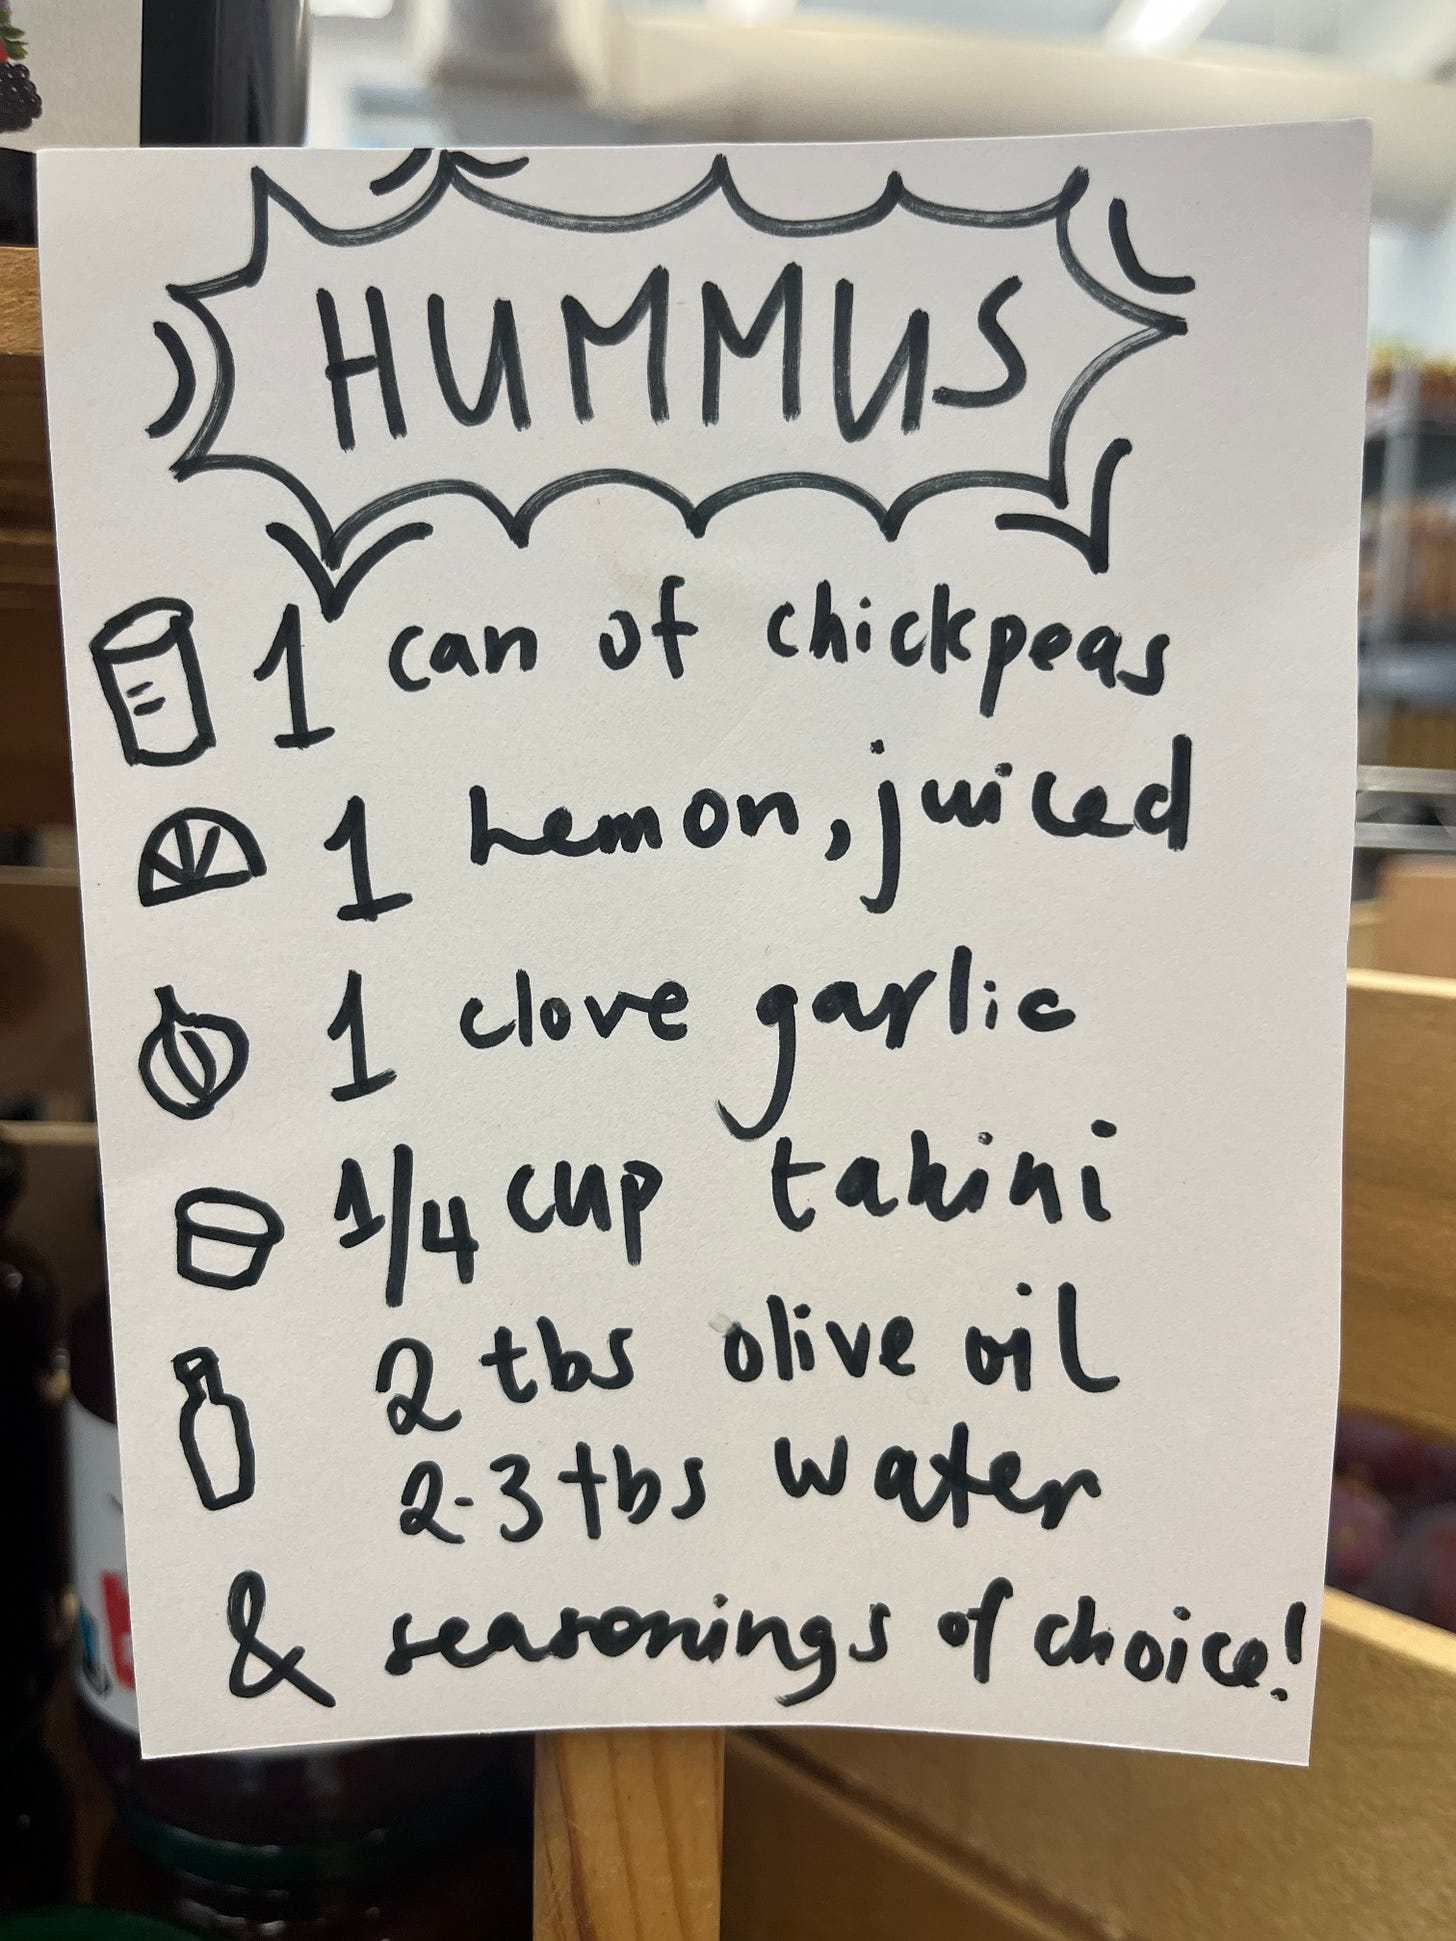 HUMMUS
1 can of chickpeas
1 Lemon, juiced
1 clove garlic
1/4 cup tahini
2 tbs olive oil
2-3 tbs water
& seasonings of choice!